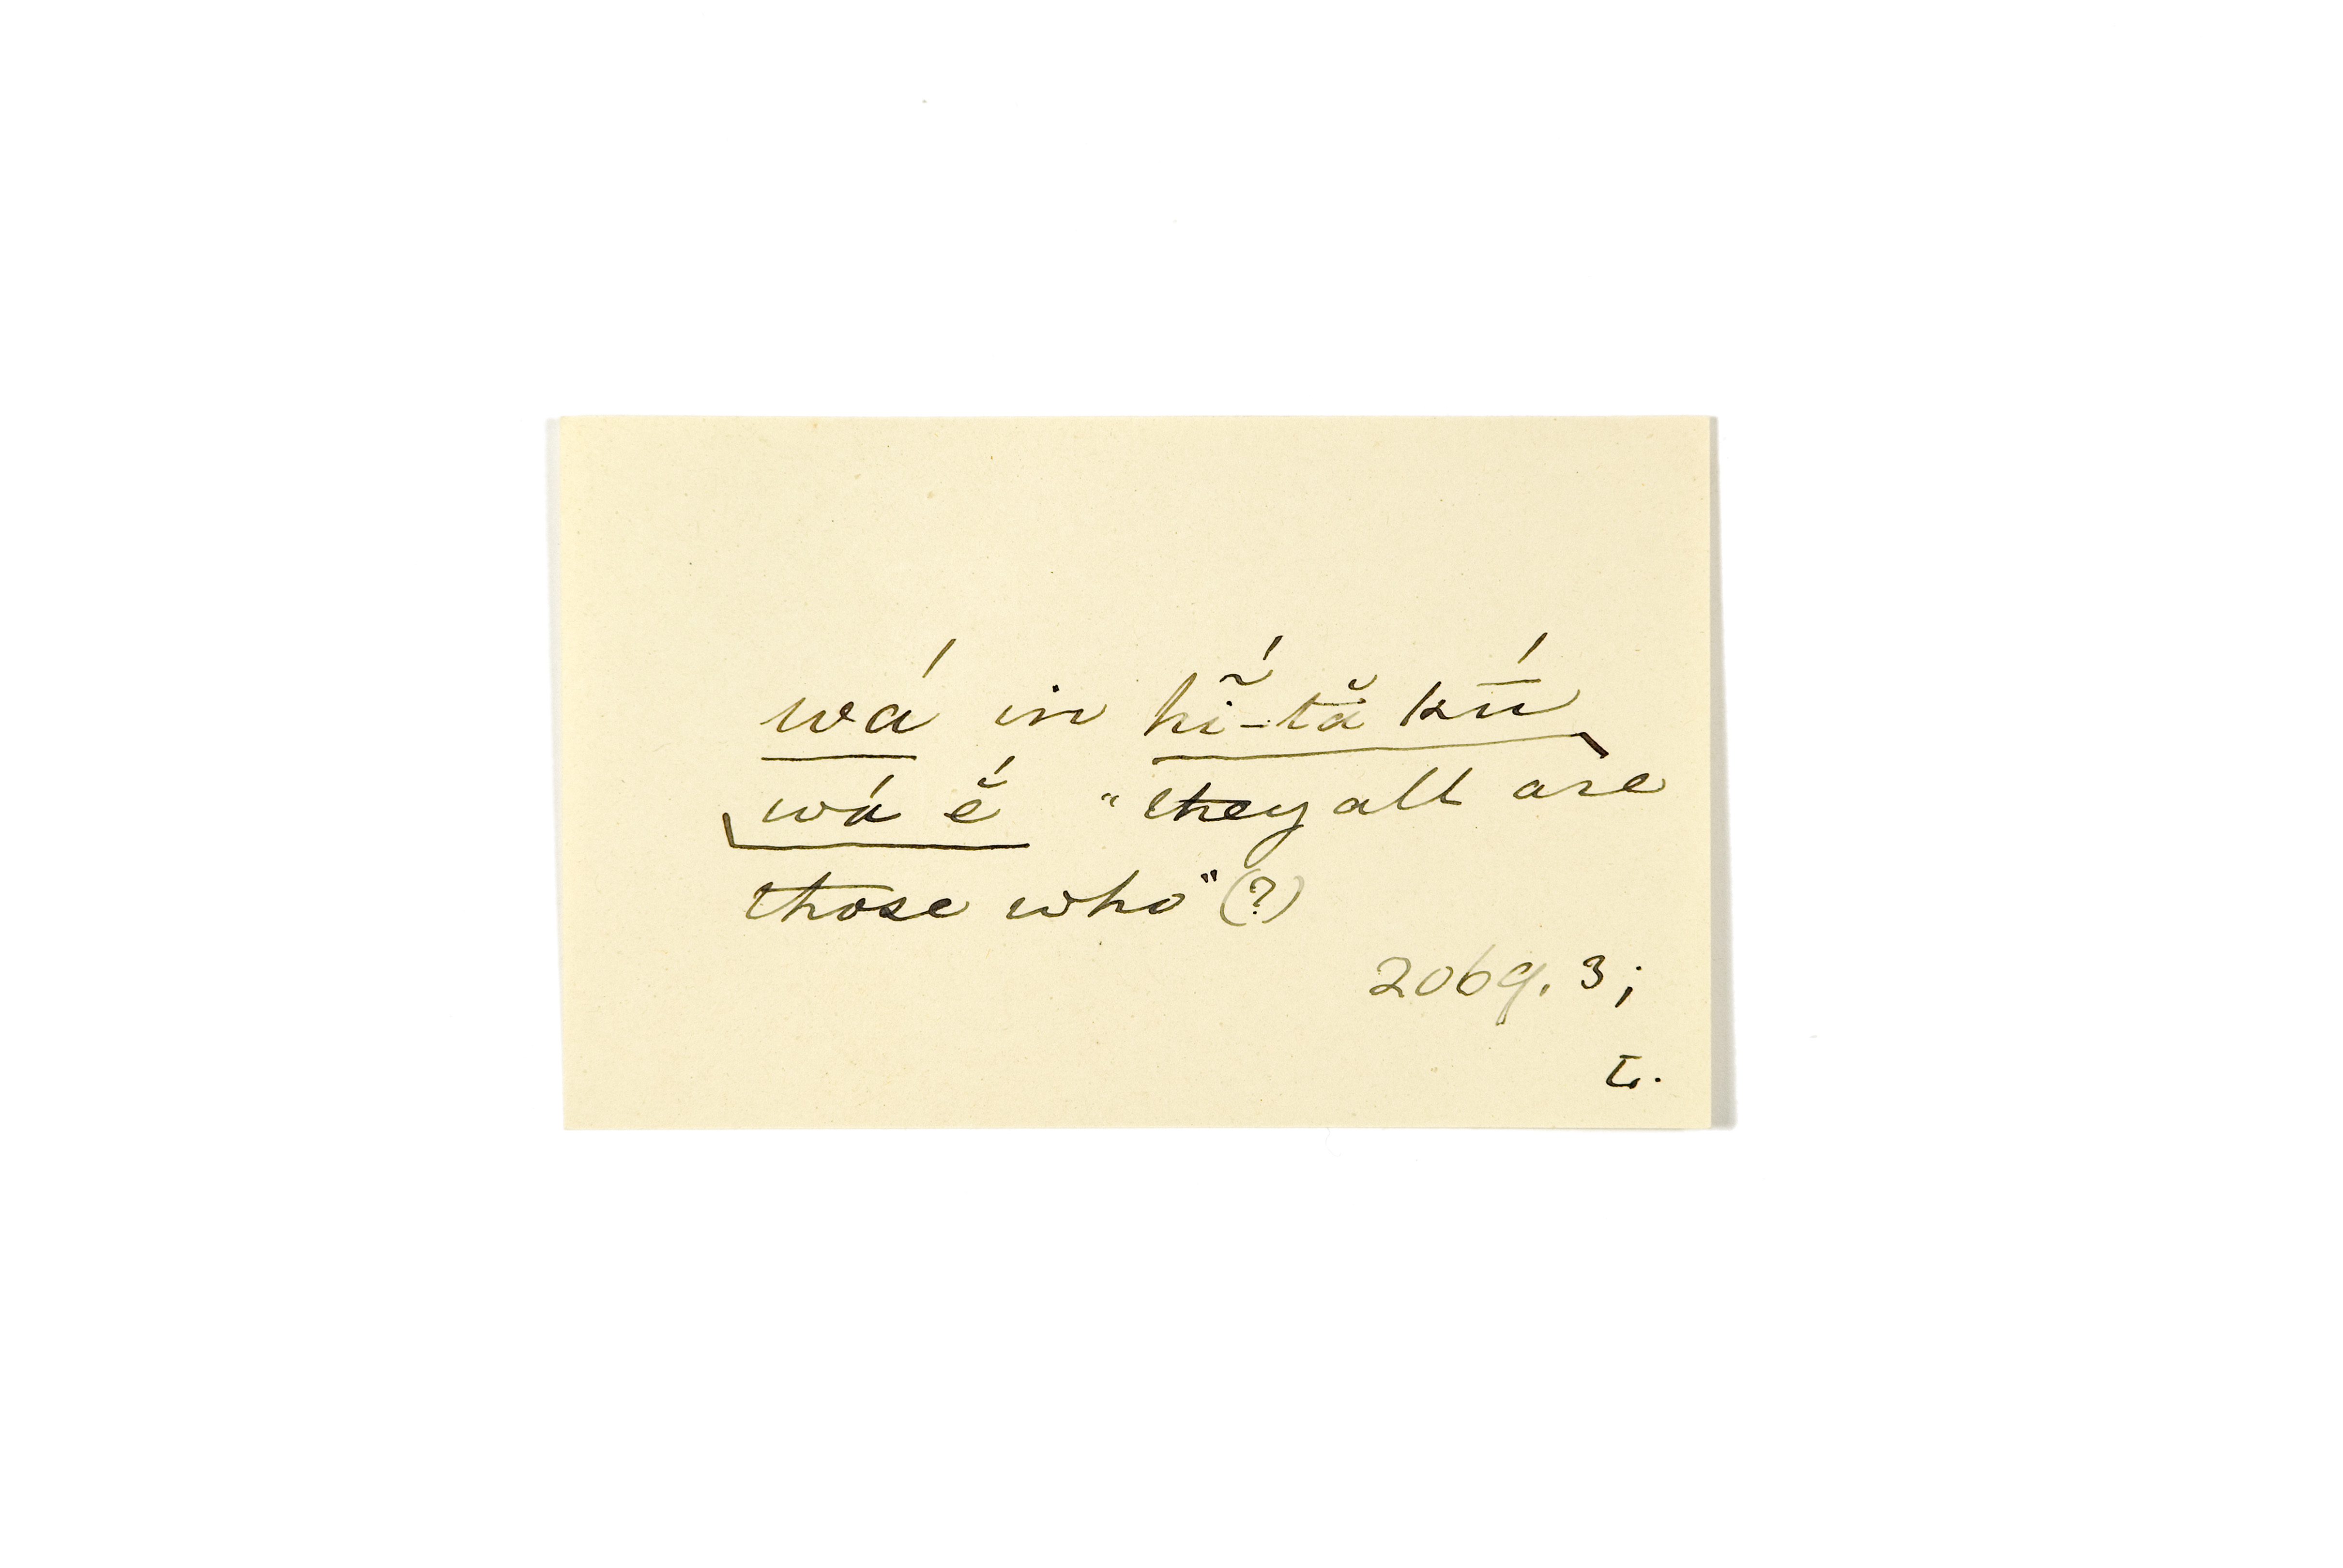 wá in hĩ́-tă kū́
wá ĕ́ "they all are
those who" (?)
2069.3;